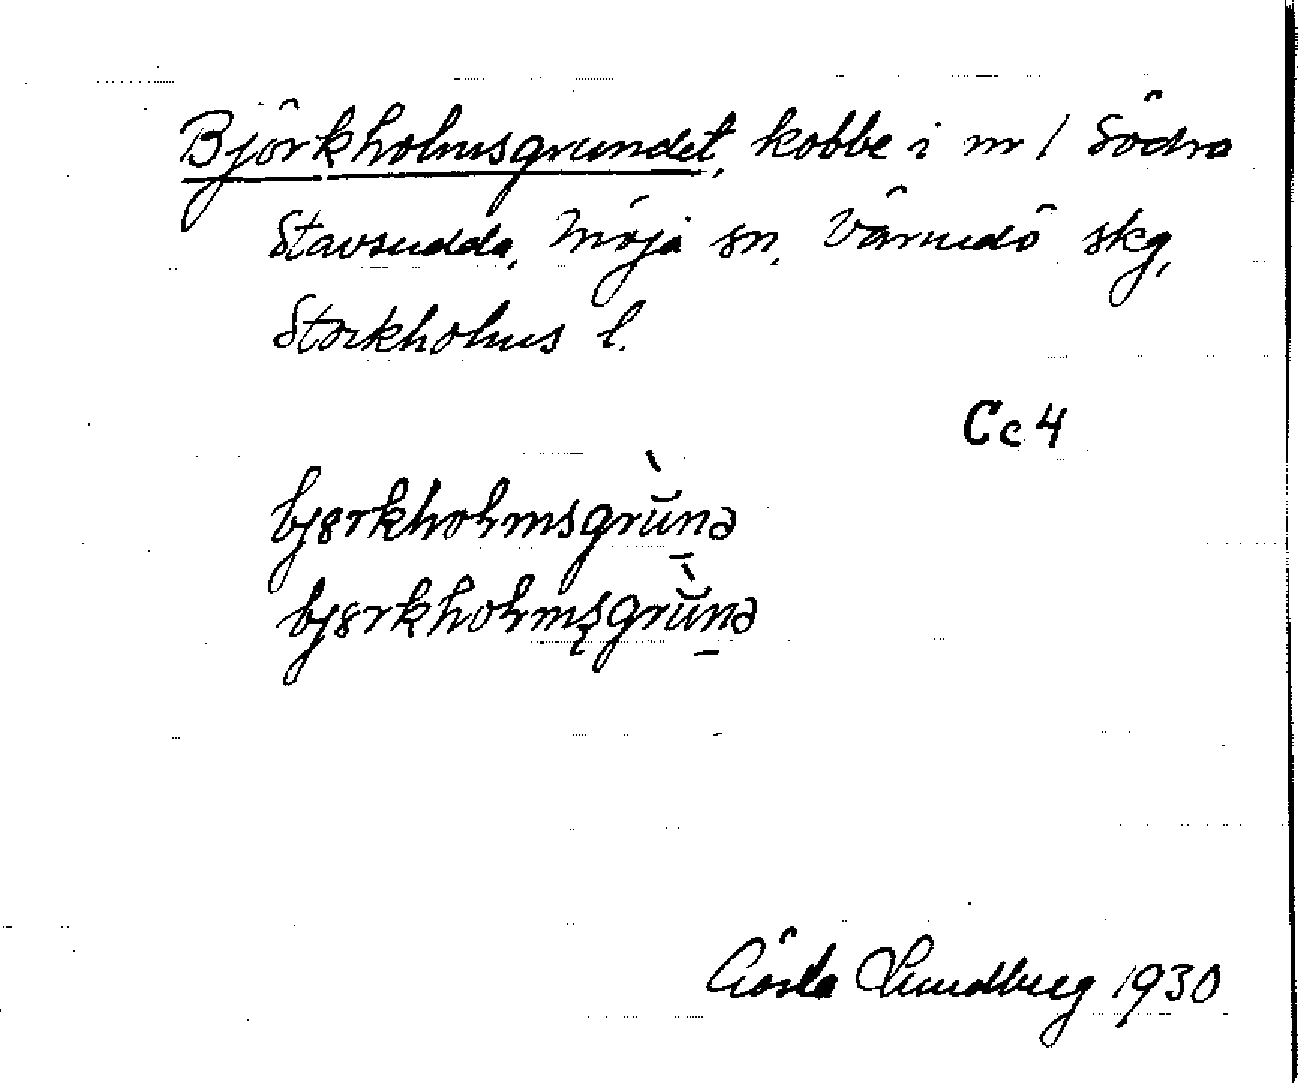 Björkholmsgrundet, kobbe i nr 1 Södra
Stavsudda, Möja sn, Värmdö skg,
Stockholms l.
Cc4
bjørkholmsgrùnə
bjørkholmsgrùnə
Gösta Lundberg 1930